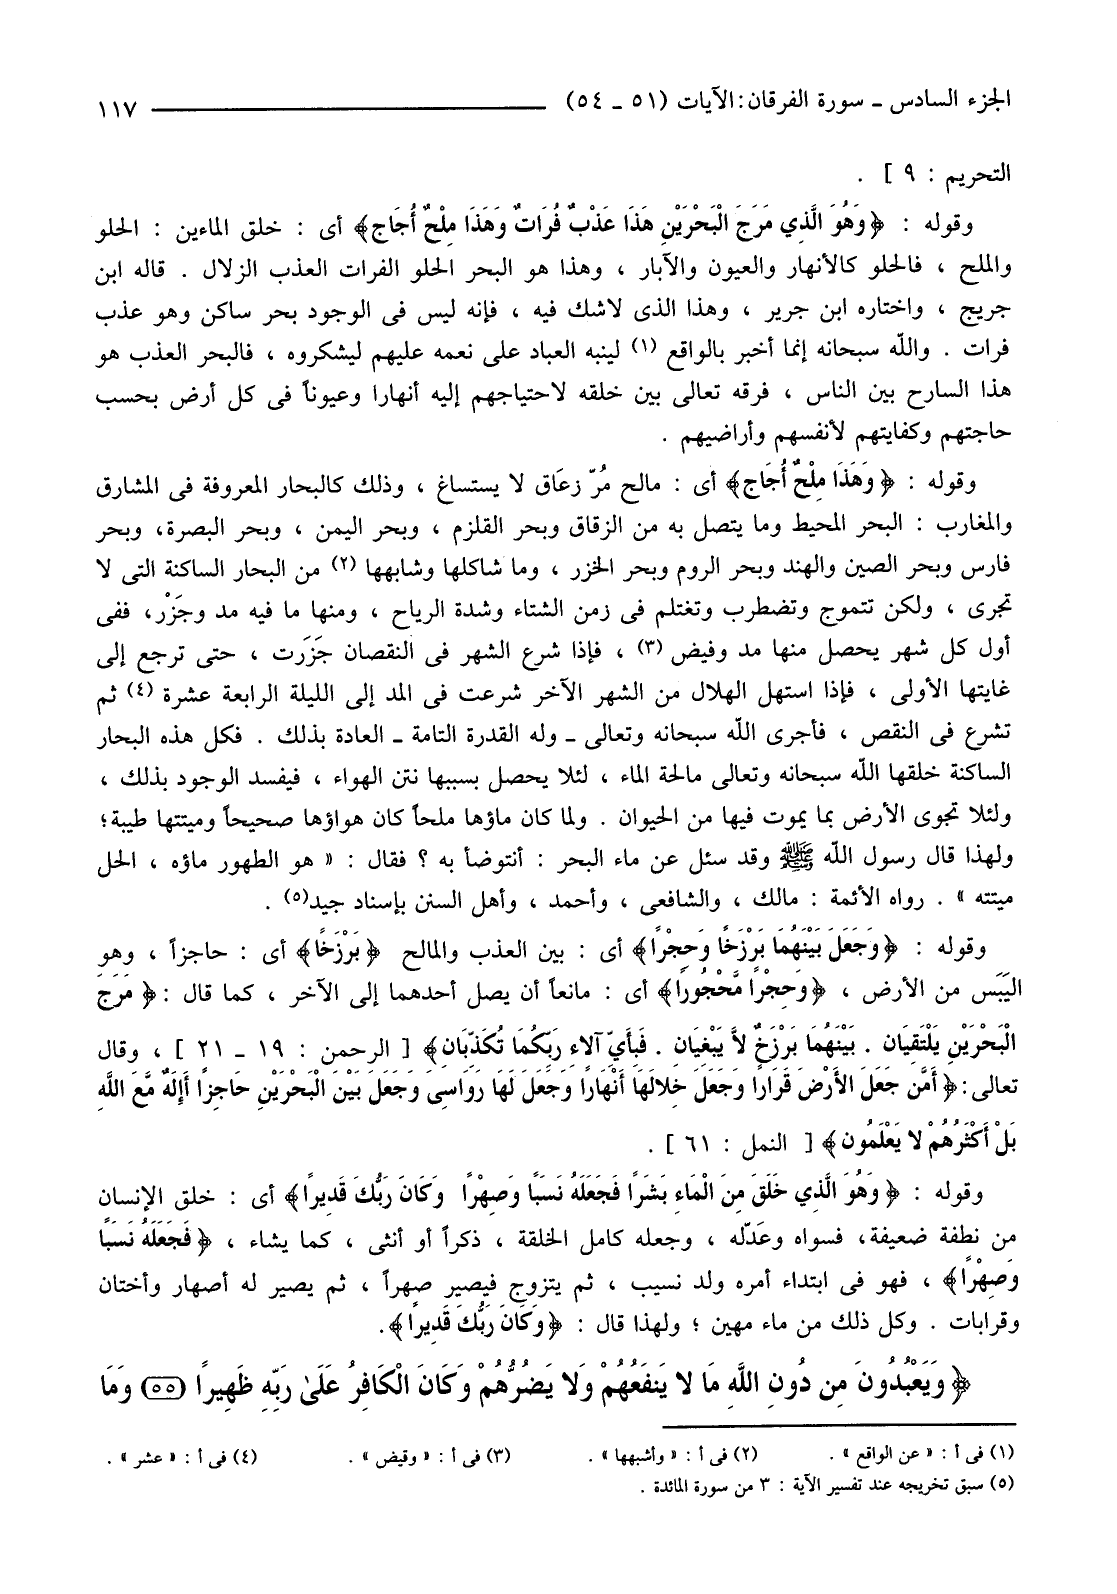 الجزء السادس ـ سورة الفرقان: الآيات (٥١ ـ ٥٤) ١١٧
التحريم : ٩ ] .
وقوله : ﴿وَهُوَ الَّذِي مَرَجَ الْبَحْرَيْنِ هَذَا عَذْبٌ فُرَاتٌ وَهَذَا مِلْحٌ أُجَاج﴾ أى : خلق الماءين : الحلو
والملح ، فالحلو كالأنهار والعيون والآبار ، وهذا هو البحر الحلو الفرات العذب الزلال . قاله ابن
جريج ، واختاره ابن جرير ، وهذا الذى لاشك فيه ، فإنه ليس فى الوجود بحر ساكن وهو عذب
فرات . والله سبحانه إنما أخبر بالواقع (١) لينبه العباد على نعمه عليهم ليشكروه ، فالبحر العذب هو
هذا السارح بين الناس ، فرقه تعالى بين خلقه لاحتياجهم إليه أنهارا وعيوناً فى كل أرض بحسب
حاجتهم وكفايتهم لأنفسهم وأراضيهم .
وقوله : ﴿وَهَذَا مِلْحٌ أُجَاج﴾ أى : مالح مُرّ زعَاق لا يستساغ ، وذلك كالبحار المعروفة فى المشارق
والمغارب : البحر المحيط وما يتصل به من الزقاق وبحر القلزم ، وبحر اليمن ، وبحر البصرة، وبحر
فارس وبحر الصين والهند وبحر الروم وبحر الخزر ، وما شاكلها وشابهها (٢) من البحار الساكنة التى لا
تجرى ، ولكن تتموج وتضطرب وتغتلم فى زمن الشتاء وشدة الرياح ، ومنها ما فيه مد وجَزْر، ففى
أول كل شهر يحصل منها مد وفيض (٣) ، فإذا شرع الشهر فى النقصان جَزَرت ، حتى ترجع إلى
غايتها الأولى ، فإذا استهل الهلال من الشهر الآخر شرعت فى المد إلى الليلة الرابعة عشرة (٤) ثم
تشرع فى النقص ، فأجرى الله سبحانه وتعالى ـ وله القدرة التامة ـ العادة بذلك . فكل هذه البحار
الساكنة خلقها الله سبحانه وتعالى مالحة الماء ، لئلا يحصل بسببها نتن الهواء ، فيفسد الوجود بذلك ،
ولئلا تجوى الأرض بما يموت فيها من الحيوان . ولما كان ماؤها ملحاً كان هواؤها صحيحاً وميتتها طيبة؛
ولهذا قال رسول الله ﷺ وقد سئل عن ماء البحر : أنتوضأ به ؟ فقال : « هو الطهور ماؤه ، الحل
ميتته » . رواه الأئمة : مالك ، والشافعى ، وأحمد ، وأهل السنن بإسناد جيد(٥) .
وقوله : ﴿وَجَعَلَ بَيْنَهُمَا بَرْزَخًا وَحِجْرًا﴾ أى : بين العذب والمالح ﴿بَرْزَخًا﴾ أى : حاجزاً ، وهو
اليَبَس من الأرض ، ﴿وَحِجْرًا مَّحْجُورًا﴾ أى : مانعاً أن يصل أحدهما إلى الآخر ، كما قال :﴿ مَرَجَ
الْبَحْرَيْنِ يَلْتَقِيَانِ . بَيْنَهُمَا بَرْزَخٌ لاَّ يَبْغِيَانِ . فَبِأَيِّ آلاءِ رَبِّكُمَا تُكَذِّبَانِ﴾ [ الرحمن : ١٩ ـ ٢١ ] ، وقال
تعالى:﴿ أَمَّن جَعَلَ الأَرْضَ قَرَارًا وَجَعَلَ خِلالَهَا أَنْهَارًا وَجَعَلَ لَهَا رَوَاسِيَ وَجَعَلَ بَيْنَ الْبَحْرَيْنِ حَاجِزًا أَإِلَهٌ مَّعَ اللَّهِ
بَلْ أَكْثَرُهُمْ لا يَعْلَمُون﴾ [ النمل : ٦١ ] .
وقوله : ﴿ وَهُوَ الَّذِي خَلَقَ مِنَ الْمَاءِ بَشَرًا فَجَعَلَهُ نَسَبًا وَصِهْرًا وَكَانَ رَبُّكَ قَدِيرًا﴾ أى : خلق الإنسان
من نطفة ضعيفة، فسواه وعَدّله ، وجعله كامل الخلقة ، ذكراً أو أنثى ، كما يشاء ، ﴿ فَجَعَلَهُ نَسَبًا
وَصِهْرًا﴾ ، فهو فى ابتداء أمره ولد نسيب ، ثم يتزوج فيصير صهراً ، ثم يصير له أصهار وأختان
وقرابات . وكل ذلك من ماء مهين ؛ ولهذا قال : ﴿وَكَانَ رَبُّكَ قَدِيرًا﴾.
﴿ وَيَعْبُدُونَ مِن دُونِ اللَّهِ مَا لا يَنفَعُهُمْ وَلا يَضُرُّهُمْ وَكَانَ الْكَافِرُ عَلَىٰ رَبِّهِ ظَهِيرًا (٥٥) وَمَا
(١) فى أ : « عن الواقع » . (٢) فى أ : « وأشبهها » . (٣) فى أ : « وقيض » . (٤) فى أ : « عشر » .
(٥) سبق تخريجه عند تفسير الآية : ٣ من سورة المائدة .